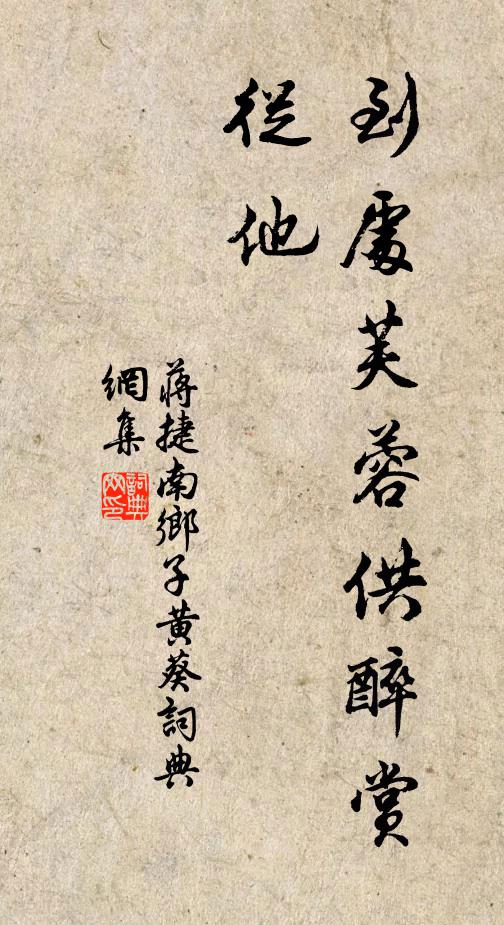 到處芙蓉供醉賞
從他
蔣捷南鄉子黃葵詞典
網集
詞典